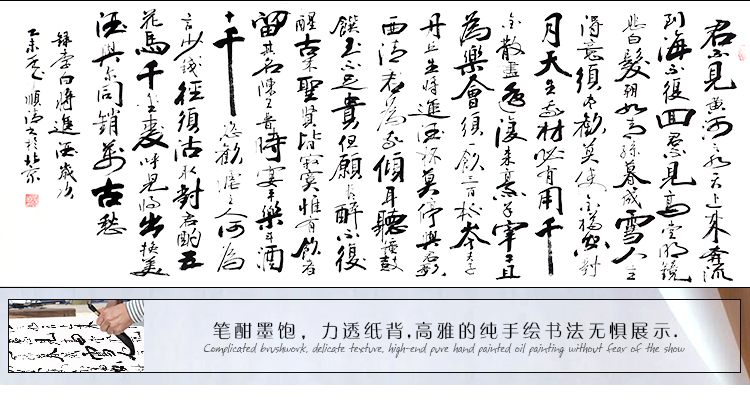 君不見黃河之水天上來奔流
到海不復回君不見高堂明鏡
悲白髮朝如青絲暮成雪人生
得意須盡歡莫使金樽空對
月天生我材必有用千
金散盡還復來烹羊宰牛且
為樂會須一飲三百杯岑夫子
丹丘生將進酒杯莫停與君歌
曲請君為我傾耳聽鐘鼓
饌玉不足貴但願長醉不復
醒古來聖賢皆寂寞惟有飲者
留其名陳王昔時宴平樂斗酒
十千恣歡謔主人何為
言少錢徑須沽取對君酌五
花馬千金裘呼兒將出換美
酒與爾同銷萬古愁
錄李白將進酒歲次
乙未夏順清書於北京
笔酣墨饱，力透纸背,高雅的纯手绘书法无惧展示.
Complicated brushwork, delicate texture, high-end pure hand painted oil painting without fear of the show